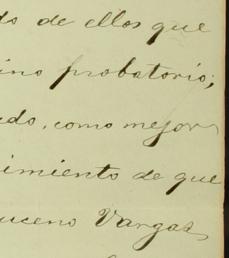 do de ellos que
ino probatorio;
ado, como mejor
cimiento de que
uceno Vargas,